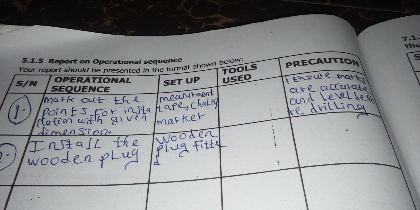 5.1.5 Report on Operational sequence
Your report should be presented in the format shown below:
S/N
OPERATIONAL SEQUENCE
SET UP
TOOLS USED
PRECAUTION
1.
mark out the
points for insta
llation with given
dimension.
measurement
tape, chalk,
market
Ensure marks
are accurate
and level be
re drilling
Install the
wooden plug
wooden
plug fitte
d
7.1.
the
S